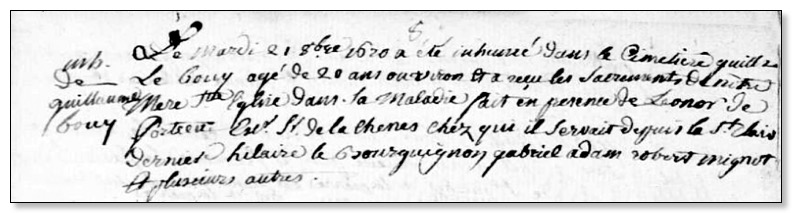 inh. de guillaume le bouy
Le Mardi 21 8bre 1670 a été inhumé dans le Cimetiere guill
Le bouy agé de 20 ans ou environ et a reçu les sacrements de nôtre
Mere Ste Eglise dans sa Maladie fait en presence de Leonor de
Es. Sr. de la Chenes chez qui il servait depuis la St. Clair
dernier hilaire le Bourguignon gabriel adam robert mignot
et plusieurs autres.